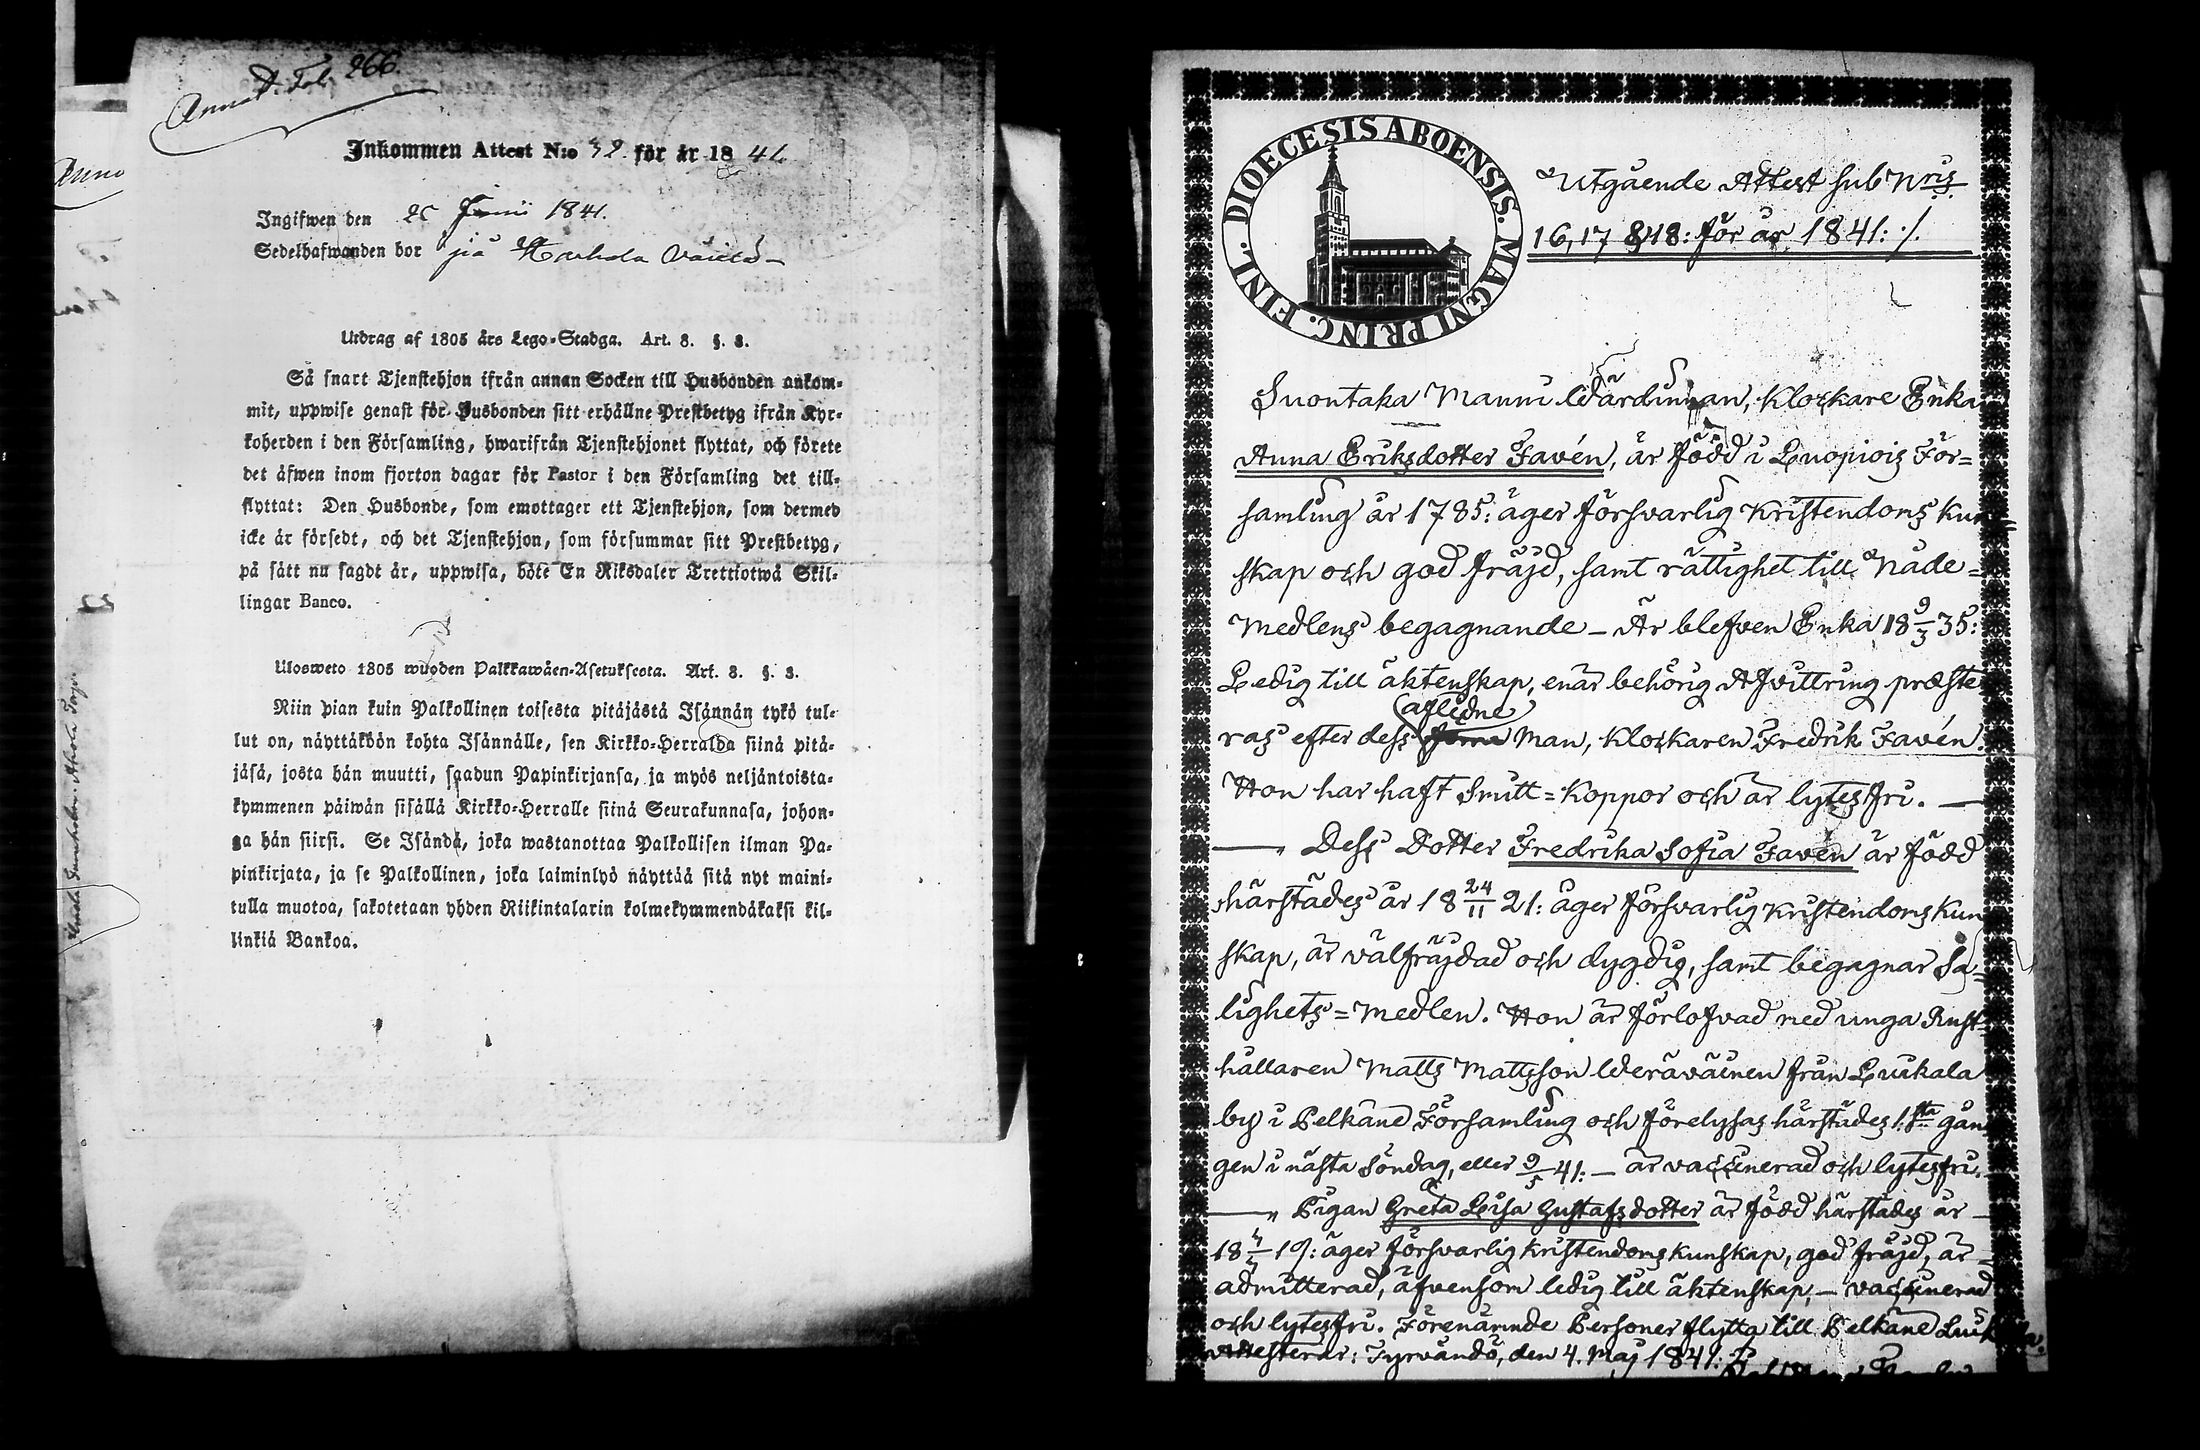 Annot. Fol. 266.
Inkommen Attest N:o 32. för år 1841.
Ingifwen den 25 Junii 1841.
Sedelhafwanden bor på
Utdrag af 1805 års Lego-Stadga. Art. 8. §. 3.
Så snart Tjenstehjon ifrån annan Socken till Husbonden ankom-
mit, uppwise genast för Husbonden sitt erhållne Prestbetyg ifrån Kyr-
koherden i den Församling, hwarifrån Tjenstehjonet flyttat, och förete
det äfwen inom fjorton dagar för Pastor i den Församling det till-
flyttat: Den Husbonde, som emottager ett Tjenstehjon, som dermed
icke är försedt, och det Tjenstehjon, som försummar sitt Prestbetyg,
på sätt nu sagdt är, uppwisa, böte En Riksdaler Trettiotwå Skil-
lingar Banco.
Ulosweto 1805 wuoden Palkkawäen-Asetuksesta. Art. 8. §. 3.
Niin pian kuin Palkollinen toisesta pitäjästä Isännän tykö tul-
lut on, näyttäköön kohta Isännälle, sen Kirkko-Herralda siinä pitä-
jäsä, josta hän muutti, saadun Papinkirjansa, ja myös neljäntoista-
kymmenen päiwän sisällä Kirkko-Herralle siinä Seurakunnasa, johon-
ga hän siirsi. Se Isändä, joka wastanottaa Palkollisen ilman Pa-
pinkirjata, ja se Palkollinen, joka laiminlyö näyttää sitä nyt maini-
tulla muotoa, sakotetaan yhden Riikintalarin kolmekymmendäkaksi kil-
linkiä Bankoa.
DIOECESIS ABOENSIS. MAGNI PRINC. FINL.
Utgående Attest sub Nris
16, 17 & 18: för år 1841: /.
Suontaka Manni Wärdinnan, Klockare Enka
Anna Eriksdotter Favén, är född i Luopiois För=
samling år 1785: äger försvarlig Kristendoms kun
skap och god fräjd, samt rättighet till Nåde=
Medlens begagnande – Är blefven Enka 18 9/3 35:
Ledig till äktenskap, enär behörig Afvittring præste
ras efter dess aflidne Man, Klockaren Fredrik Favén.
Hon har haft Smitt=Koppor och är lytesfri. —
— Dess Dotter Fredrika Sofia Favén är född
härstädes år 18 24/11 21: äger försvarlig Kristendoms Kun
skap, är välfräjdad och dygdig, samt begagnar Sa=
lighets=Medlen. Hon är förlofvad med unga Rust=
hållaren Matts Mattsson Weräväinen från Luikala
by i Pelkäne Församling och förelyses härstädes 1:sta gån
gen i nästa Söndag, eller 9/5 41: – är vaccinerad och lytesfri.
— Pigan Greta Lisa Gustafsdotter är född härstädes år –
18 19: äger försvarlig Kristendoms kunskap, god fräjd, är –
admitterad, äfvensom ledig till äktenskap, – vaccinerad
och lytesfri. Förenämnde Personer flytta till Pelkäne Luikala.
Attesterar: Tyrvändö, den 4. Maj 1841: